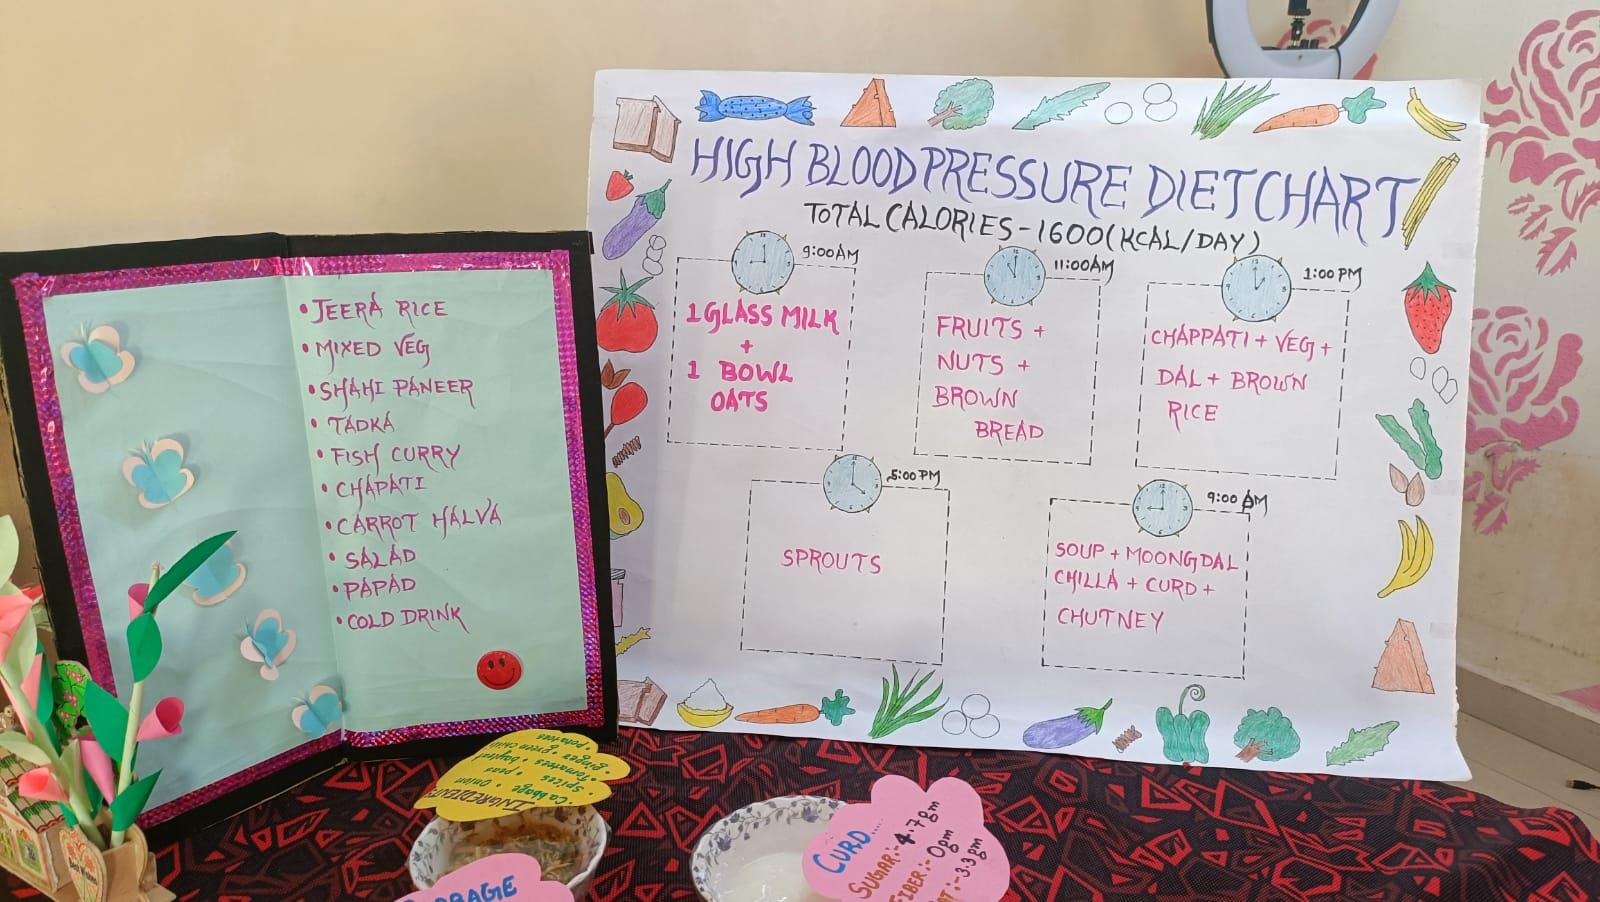 • JEERA RICE
• MIXED VEG
• SHAHI PANEER
• TADKA
• FISH CURRY
• CHAPATI
• CARROT HALVA
• SALAD
• PAPAD
• COLD DRINK
HIGH BLOOD PRESSURE DIET CHART
TOTAL CALORIES - 1600 (KCAL/DAY)
9:00 AM
1 GLASS MILK
+
1 BOWL
OATS
11:00 AM
FRUITS +
NUTS +
BROWN
BREAD
1:00 PM
CHAPPATI + VEG +
DAL + BROWN
RICE
5:00 PM
SPROUTS
9:00 PM
SOUP + MOONG DAL
CHILLA + CURD +
CHUTNEY
INGREDIENTS
• Cabbage • Onion
• Spices • peas
• Tomatoes
• ginger & green chilli
• potatoes
CURD
SUGAR:- 4.7gm
FIBER:- 0gm